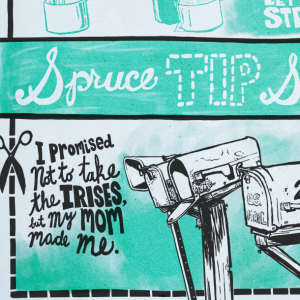 LET
STE
Spruce TIP S
I promised
Not to take
the IRISES,
but my MOM
made me.
U.S.
MAIL